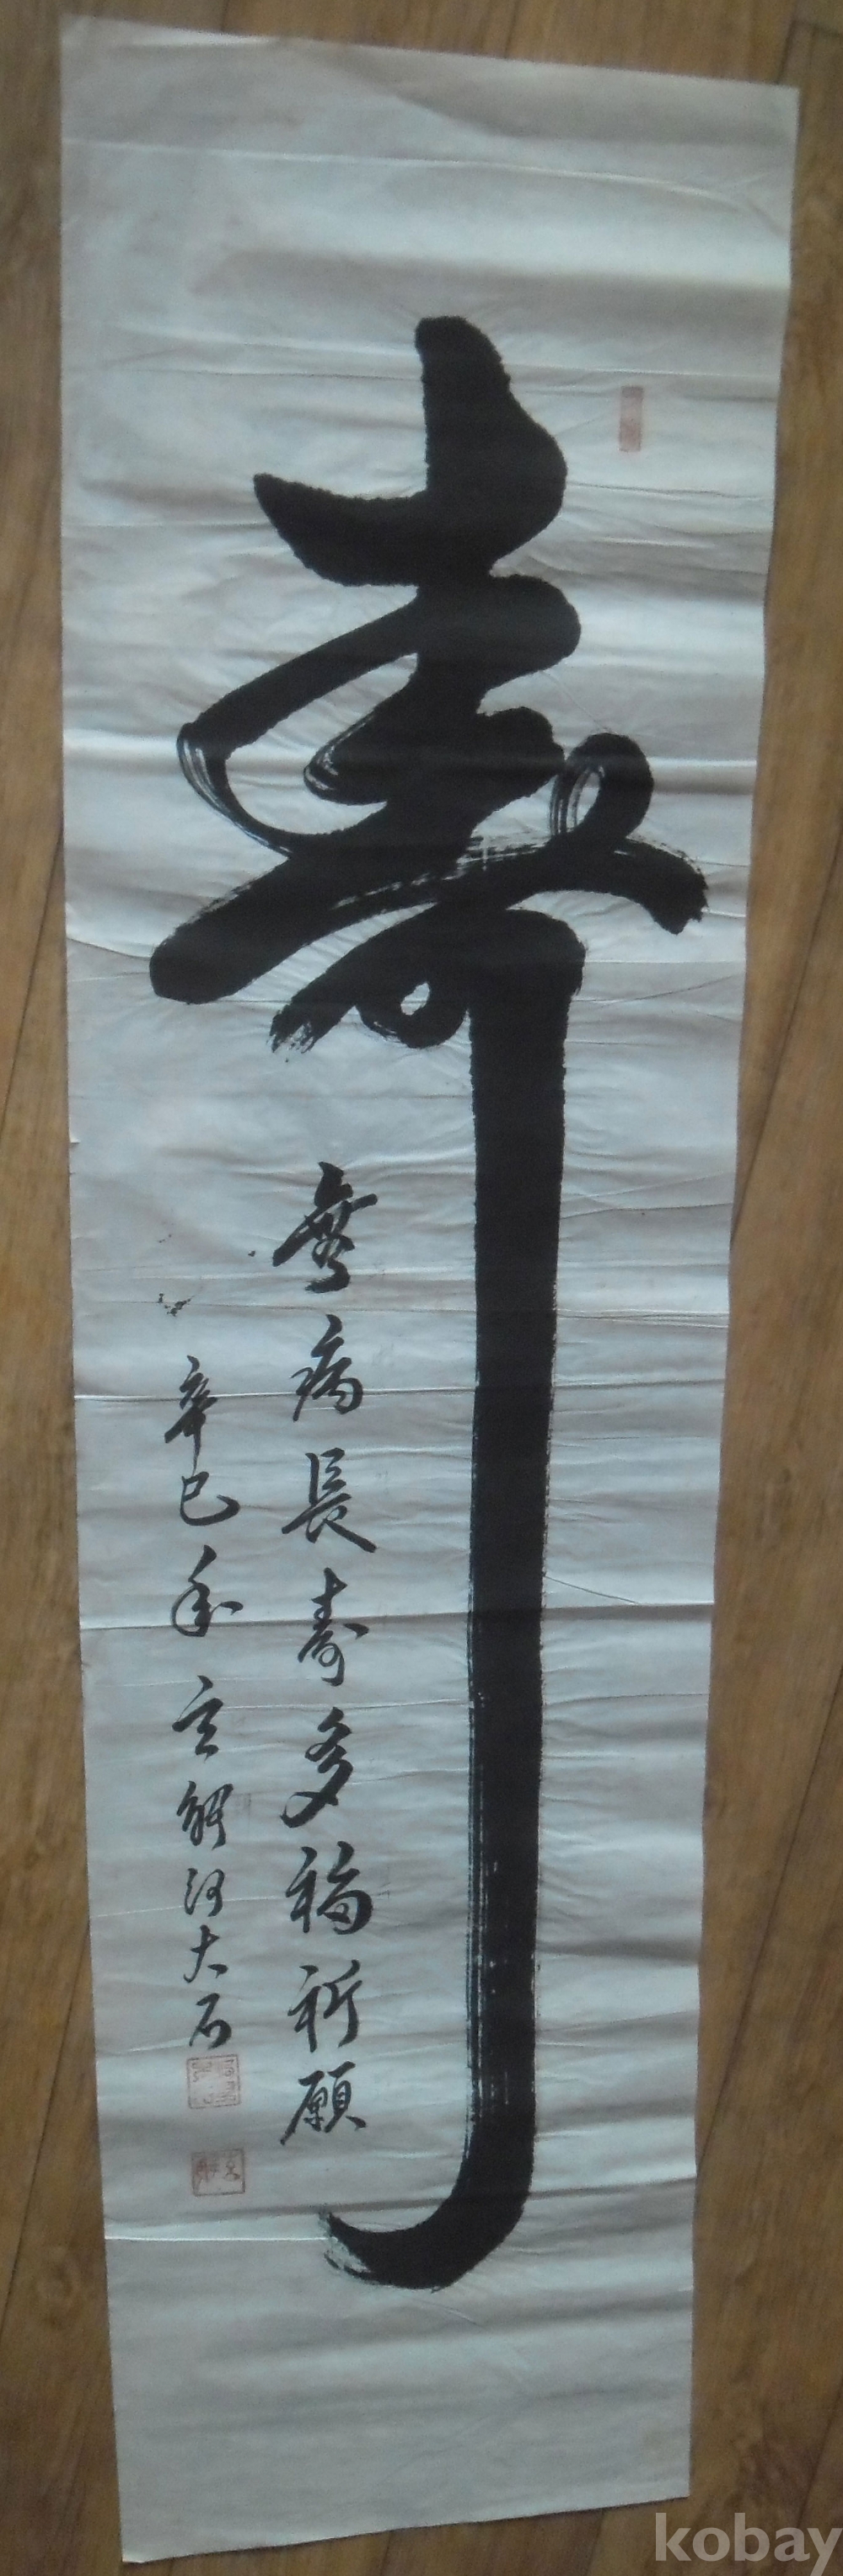 壽
無病長壽多福祈願
辛巳秋 玄解 河大石
kobay